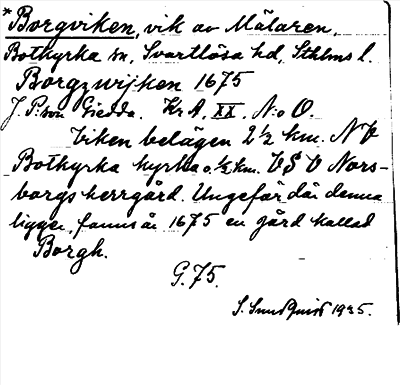 *Borgviken, vik av Mälaren,
Botkyrka sn, Svartlösa hd, Sthlms l.
Borgzwijken 1675
J. P:son Giedda. Kr A, XX, N:o O.
Viken belägen 2 1/2 km. NV
Botkyrka kyrka o. 1/2 km. VSV Nors-
borgs herrgård. Ungefär där denna
ligger, fanns år 1675 en gård kallad
Borgh.
G. 75.
S. Sundquist 1935.